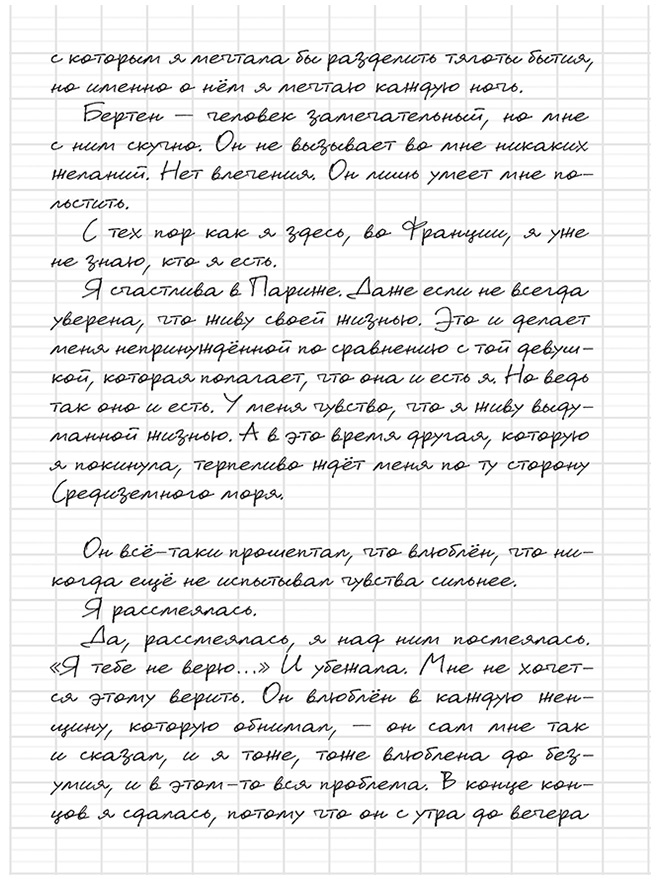 с которым я мечтала бы разделить тяготы бытия,
но именно о нём я мечтаю каждую ночь.
Бертен — человек замечательный, но мне
с ним скучно. Он не вызывает во мне никаких
желаний. Нет влечения. Он лишь умеет мне по-
льстить.
С тех пор как я здесь, во Франции, я уже
не знаю, кто я есть.
Я счастлива в Париже. Даже если не всегда
уверена, что живу своей жизнью. Это и делает
меня непринуждённой по сравнению с той девуш-
кой, которая полагает, что она и есть я. Но ведь
так оно и есть. У меня чувство, что я живу выду-
манной жизнью. А в это время другая, которую
я покинула, терпеливо ждёт меня по ту сторону
Средиземного моря.
Он всё-таки прошептал, что влюблён, что ни-
когда ещё не испытывал чувства сильнее.
Я рассмеялась.
Да, рассмеялась, я над ним посмеялась.
«Я тебе не верю...» И убежала. Мне не хочет-
ся этому верить. Он влюблён в каждую жен-
щину, которую обнимал, — он сам мне так
и сказал, и я тоже, тоже влюблена до без-
умия, и в этом-то вся проблема. В конце кон-
цов я сдалась, потому что он с утра до вечера